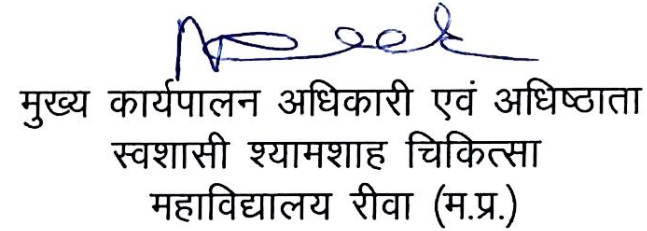 मुख्य कार्यपालन अधिकारी एवं अधिष्ठाता
स्वशासी श्यामशाह चिकित्सा
महाविद्यालय रीवा (म.प्र.)